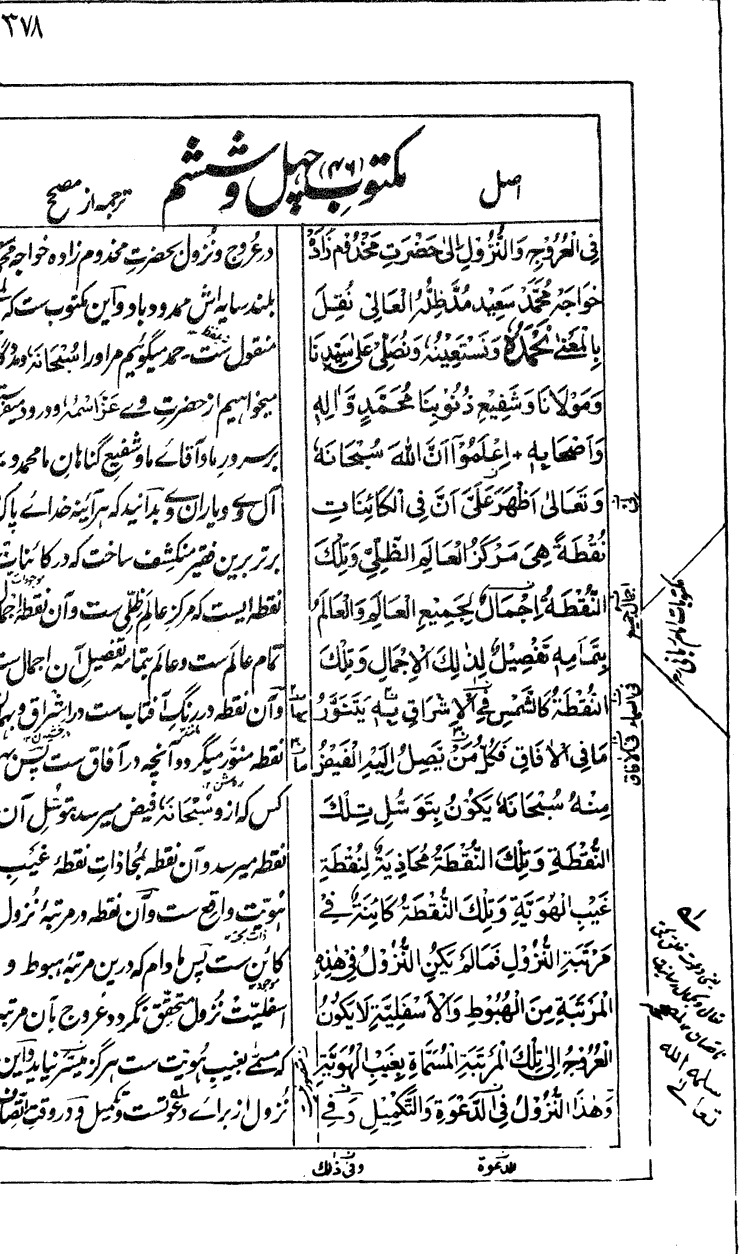 ٣٧٨
مکتوب (۴۶) چہل و ششم
اصل
ترجمہ از مصحح
فِی الْعُرُوْجِ وَالنُّزُوْلِ اِلٰی حَضْرَتِ مَخْدُوْم زَادَہ
خَوَاجَہْ مُحَمَّدْ سَعِیْد مُدَّظِلُّہُ الْعَالِیْ نُقِلَ
بِالْمَعْنٰی نَحْمَدُہٗ وَنَسْتَعِیْنُہٗ وَنُصَلِّیْ عَلٰی سَیِّدِنَا
وَمَوْلَانَا وَشَفِیْعِ ذُنُوْبِنَا مُحَمَّدٍ وَّاٰلِہٖ
وَاَصْحَابِہٖ + اِعْلَمُوْا اَنَّ اللّٰہَ سُبْحَانَہٗ
وَتَعَالٰی اَظْهَرَ عَلَیَّ اَنَّ فِی الْکَائِنَاتِ
نُقْطَةً هِیَ مَرْکَزُ الْعَالَمِ الظِّلِّیِّ وَتِلْکَ
النُّقْطَةُ اِجْمَالٌ لِجَمِیْعِ الْعَالَمِ وَالْعَالَمُ
بِتَمَامِہٖ تَفْصِیْلٌ لِذٰلِکَ الْاِجْمَالِ وَتِلْکَ
النُّقْطَةُ کَالشَّمْسِ فِی الْاِشْرَاقِ بِہٖ یَتَنَوَّرُ
مَا فِی الْاٰفَاقِ فَکُلُّ مَنْ یَّصِلُ اِلَیْہِ الْفَیْضُ
مِنْہُ سُبْحَانَہٗ یَکُوْنُ بِتَوَسُّلِ تِلْکَ
النُّقْطَةِ وَتِلْکَ النُّقْطَةُ مُحَاذِیَةٌ لِنُقْطَةِ
غَیْبِ الْهُوِیَّةِ وَتِلْکَ النُّقْطَةُ کَائِنَةٌ فِیْ
مَرْتَبَةِ النُّزُوْلِ فَمَا لَمْ یَکُنِ النُّزُوْلُ فِیْ هٰذِہِ
الْمَرْتَبَةِ مِنَ الْهُبُوْطِ وَالْاَسْفَلِیَّةِ لَا یَکُوْنُ
الْعُرُوْجُ اِلٰی تِلْکَ الْمَرْتَبَةِ الْمُسَمَّاةِ بِغَیْبِ الْهُوِیَّةِ
وَهٰذَا النُّزُوْلُ فِی الدَّعْوَةِ وَالتَّکْمِیْلِ وَفِیْ
در عروج و نزول بحضرتِ مخدوم زادہ خواجہ
بلند سایہ اش ممدود باد و این مکتوب ست کہ
منقول ست۔ حمد میگوئیم مر او را سُبْحَانَہٗ
میخواہیم از حضرتِ وے عَزَّ اسْمُہٗ و درود
بر سرورِ ما و آقائے ما و شفیعِ گناہانِ ما محمد و
آلِ وے و یارانِ وے بدانید کہ ہر آئینہ خدائے
برترین فقیر منکشف ساخت کہ در
نقطہ ایست کہ مرکزِ عالمِ ظلی ست و آن نقطہ
تمام عالم ست و عالم بتمامہ تفصیلِ آن اجمال ست
و آن نقطہ در رنگِ آفتاب ست در اشراق و
نقطہ منور میگردد آنچہ در آفاق ست پس
کس کہ از و سُبْحَانَہٗ فیض میرسد بتوسل آن
نقطہ میرسد و آن نقطہ بمحاذاتِ نقطۂ غیبِ
ہویت واقع ست و آن نقطہ در مرتبۂ نزول
کائن ست پس مادام کہ درین مرتبۂ ہبوط و
اسفلیت نزول متحقق نگردد عروج بآن مرتبہ
کہ مسمّٰی بغیبِ ہویت ست ہرگز میسر نیاید و این
نزول از برائے دعوتست و تکمیل و در وقت
مکتوبات امام ربانی
اجمال جمیع
فی الآفاق
سلمہ اللہ
تعالیٰ
للدعوة
وفی ذلک